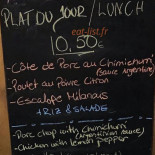 PLAT DU JOUR / LUNCH
eat-list.fr
10,50€
- Côte de Porc au Chimichurri
(sauce Argentine)
- Poulet au Poivre Citron
- Escalope Milanais
+ RIZ & SALADE
- Porc chop with Chimichurri
(argentinian sauce)
- Chicken with lemon pepper